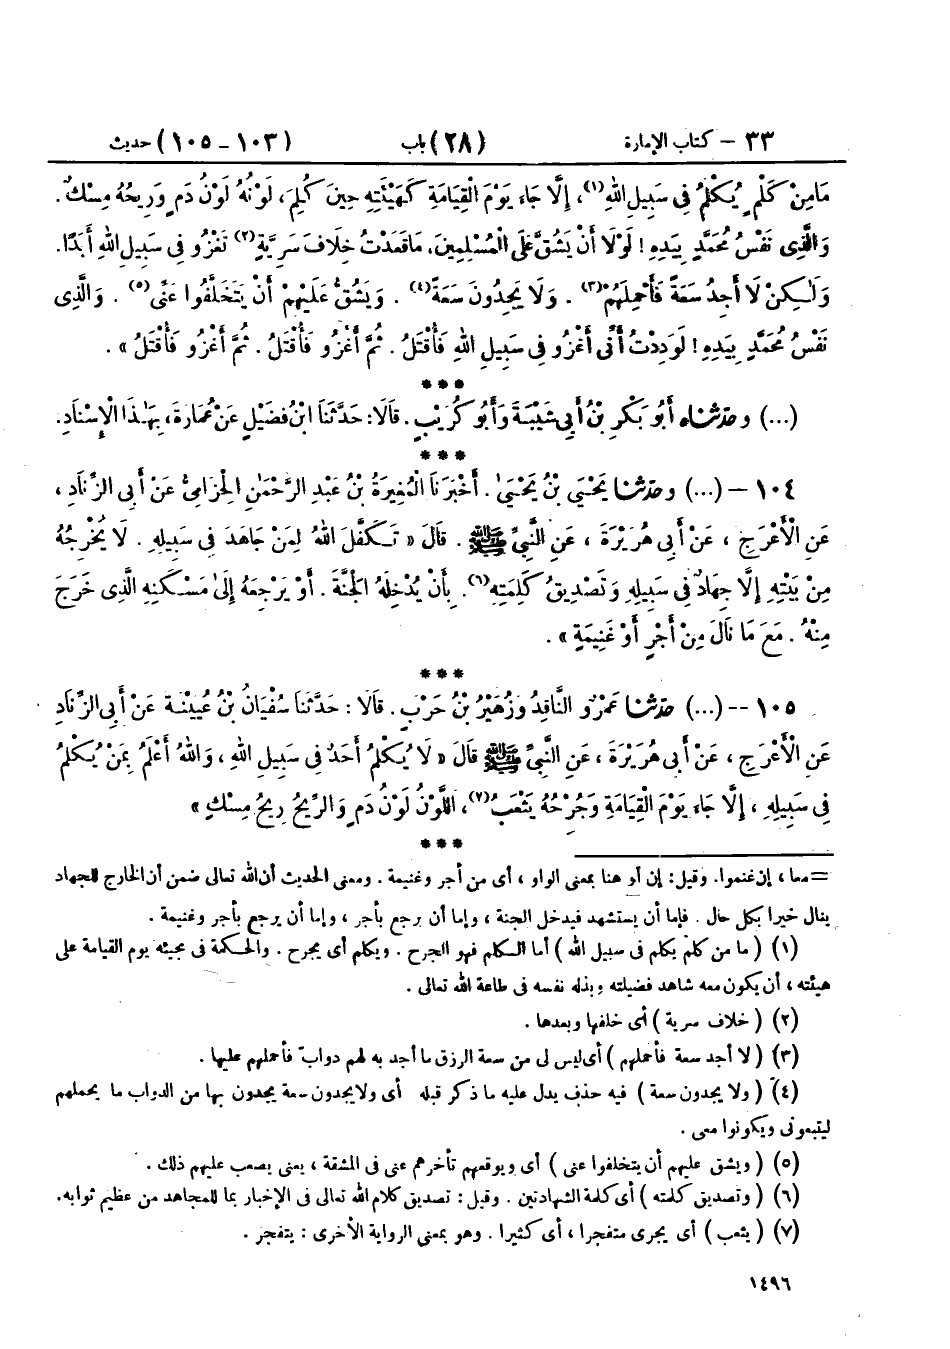 ٣٣ – كتاب الإمارة (٢٨) باب (١٠٣ – ١٠٥) حديث
مَا مِنْ كَلْمٍ يُكْلَمُ فِى سَبِيلِ اللهِ(١)، إِلَّا جَاءَ يَوْمَ الْقِيَامَةِ كَهَيْئَتِهِ حِينَ كُلِمَ، لَوْنُهُ لَوْنُ دَمٍ وَرِيحُهُ مِسْكٌ.
وَالَّذِى نَفْسُ مُحَمَّدٍ بِيَدِهِ! لَوْلَا أَنْ يَشُقَّ عَلَى الْمُسْلِمِينَ، مَا قَعَدْتُ خِلَافَ سَرِيَّةٍ(٢) تَغْزُو فِى سَبِيلِ اللهِ أَبَدًا.
وَلَكِنْ لَا أَجِدُ سَعَةً فَأَحْمِلَهُمْ(٣). وَلَا يَجِدُونَ سَعَةً(٤). وَيَشُقُّ عَلَيْهِمْ أَنْ يَتَخَلَّفُوا عَنِّى(٥). وَالَّذِى
نَفْسُ مُحَمَّدٍ بِيَدِهِ! لَوَدِدْتُ أَنِّى أَغْزُو فِى سَبِيلِ اللهِ فَأُقْتَلُ. ثُمَّ أَغْزُو فَأُقْتَلُ. ثُمَّ أَغْزُو فَأُقْتَلُ».
***
(...) وحدّثناه أَبُو بَكْرِ بْنُ أَبِى شَيْبَةَ وَأَبُو كُرَيْبٍ. قَالَا: حَدَّثَنَا ابْنُ فُضَيْلٍ عَنْ عُمَارَةَ، بِهَذَا الْإِسْنَادِ.
***
١٠٤ – (...) وحدّثنا يَحْيَى بْنُ يَحْيَىٰ. أَخْبَرَنَا الْمُغِيرَةُ بْنُ عَبْدِ الرَّحْمَٰنِ الْحِزَامِىُّ عَنْ أَبِى الزِّنَادِ،
عَنِ الْأَعْرَجِ، عَنْ أَبِى هُرَيْرَةَ، عَنِ النَّبِىِّ ﷺ. قَالَ «تَكَفَّلَ اللهُ لِمَنْ جَاهَدَ فِى سَبِيلِهِ. لَا يُخْرِجُهُ
مِنْ بَيْتِهِ إِلَّا جِهَادٌ فِى سَبِيلِهِ وَتَصْدِيقُ كَلِمَتِهِ(٦). بِأَنْ يُدْخِلَهُ الْجَنَّةَ. أَوْ يَرْجِعَهُ إِلَىٰ مَسْكَنِهِ الَّذِى خَرَجَ
مِنْهُ. مَعَ مَا نَالَ مِنْ أَجْرٍ أَوْ غَنِيمَةٍ».
***
١٠٥ – (...) حدّثنا عَمْرٌو النَّاقِدُ وَزُهَيْرُ بْنُ حَرْبٍ. قَالَا: حَدَّثَنَا سُفْيَانُ بْنُ عُيَيْنَةَ عَنْ أَبِى الزِّنَادِ
عَنِ الْأَعْرَجِ، عَنْ أَبِى هُرَيْرَةَ، عَنِ النَّبِىِّ ﷺ قَالَ «لَا يُكْلَمُ أَحَدٌ فِى سَبِيلِ اللهِ، وَاللهُ أَعْلَمُ بِمَنْ يُكْلَمُ
فِى سَبِيلِهِ، إِلَّا جَاءَ يَوْمَ الْقِيَامَةِ وَجُرْحُهُ يَثْعَبُ(٧)، اللَّوْنُ لَوْنُ دَمٍ وَالرِّيحُ رِيحُ مِسْكٍ»
***
= معا، إن غنموا. وقيل: إن أو هنا بمعنى الواو، أى من أجر وغنيمة. ومعنى الحديث أن الله تعالى ضمن أن الخارج للجهاد
ينال خيرا بكل حال. فإما أن يستشهد فيدخل الجنة، وإما أن يرجع بأجر، وإما أن يرجع بأجر وغنيمة.
(١) (ما من كلم يكلم فى سبيل الله) أما الكلم فهو الجرح. ويكلم أى يجرح. والحكمة فى مجيئه يوم القيامة على
هيئته، أن يكون معه شاهد فضيلته وبذله نفسه فى طاعة الله تعالى.
(٢) (خلاف سرية) أى خلفها وبعدها.
(٣) (لا أجد سعة فأحملهم) أى ليس لى من سعة الرزق ما أجد به لهم دوابّ فأحملهم عليها.
(٤) (ولا يجدون سعة) فيه حذف يدل عليه ما ذكر قبله أى ولا يجدون سعة يجدون بها من الدواب ما يحملهم
ليتبعونى ويكونوا معى.
(٥) (ويشق عليهم أن يتخلفوا عنى) أى ويوقعهم تأخرهم عنى فى المشقة، يعنى يصعب عليهم ذلك.
(٦) (وتصديق كلمته) أى كلمة الشهادتين. وقيل: تصديق كلام الله تعالى فى الإخبار بما للمجاهد من عظيم ثوابه.
(٧) (يثعب) أى يجرى متفجرا، أى كثيرا. وهو بمعنى الرواية الأخرى: يتفجر.
١٤٩٦